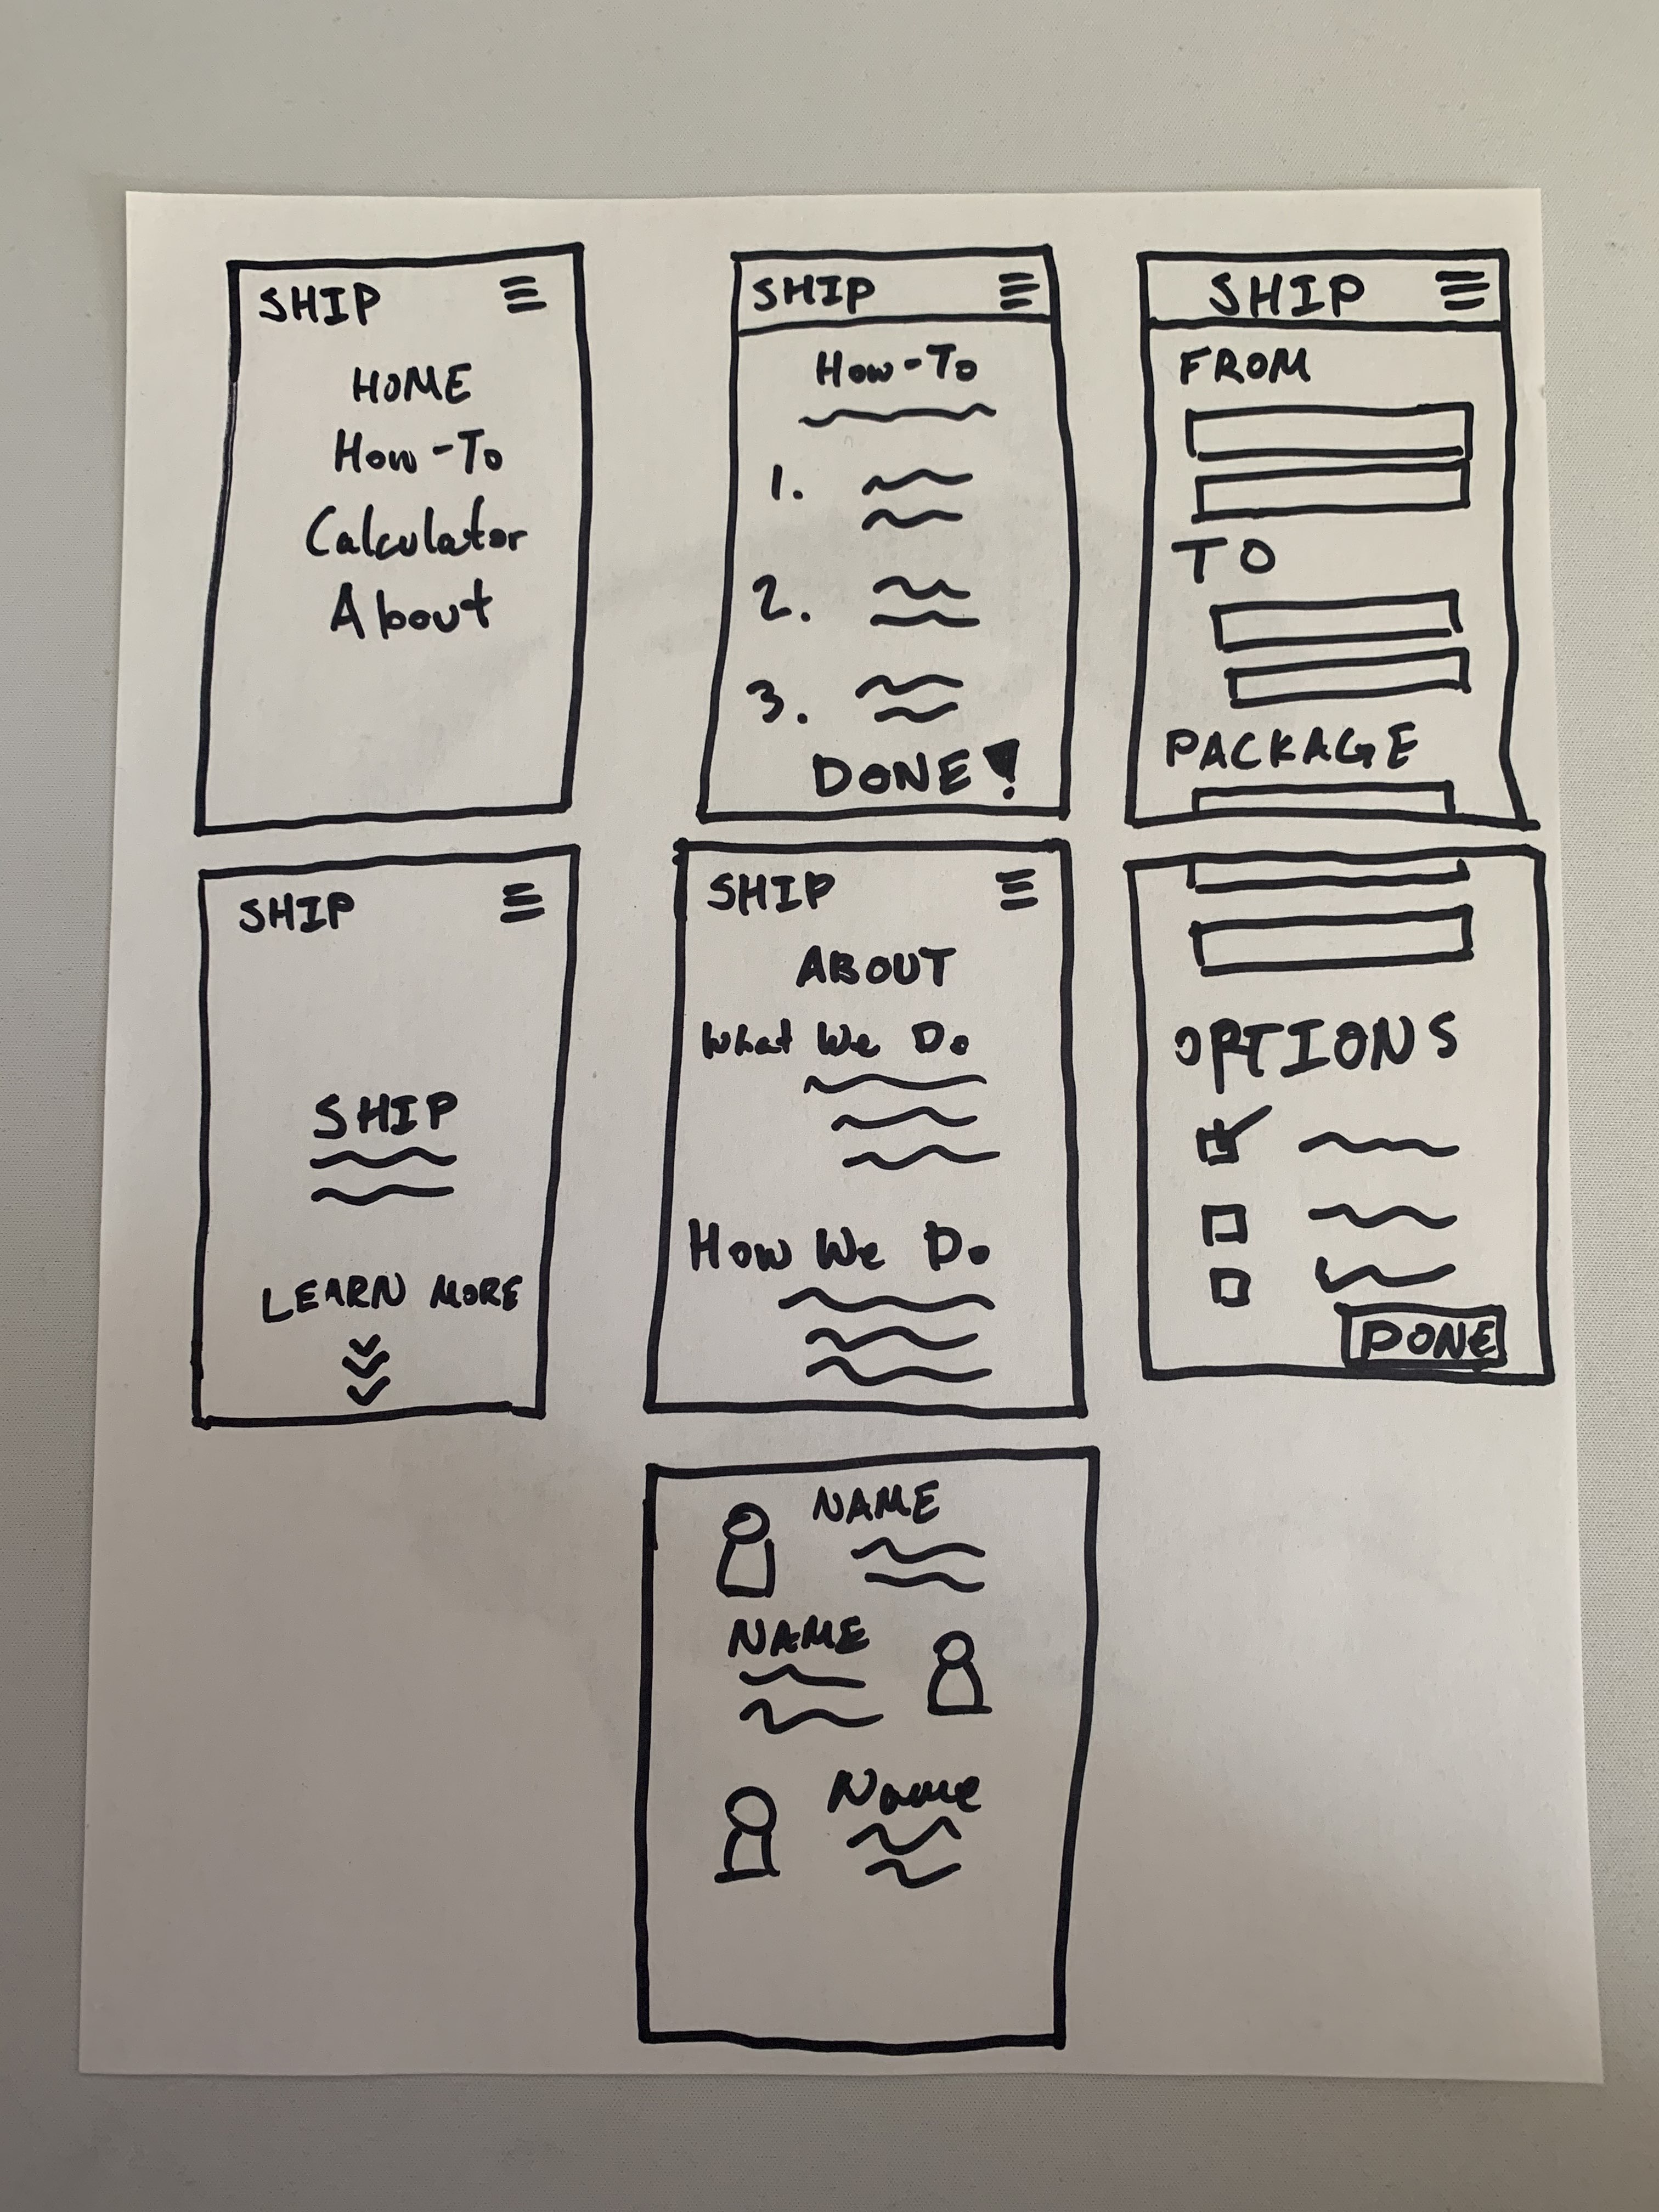 SHIP
HOME
How-To
Calculator
About
SHIP
How-To
1.
2.
3.
DONE!
SHIP
FROM
TO
PACKAGE
SHIP
SHIP
LEARN MORE
SHIP
ABOUT
What We Do
How We Do
OPTIONS
DONE
NAME
NAME
Name